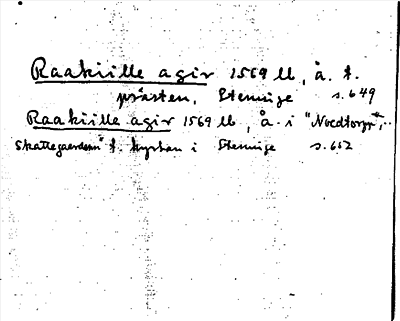 Raakiille agir 1569 lb, å. f.
prästen, Stenunge s. 649
Raakiille agir 1569 lb, å. i "Nordtorp",
Skattegaerdenn" f. kyrkan i Stenunge s. 652